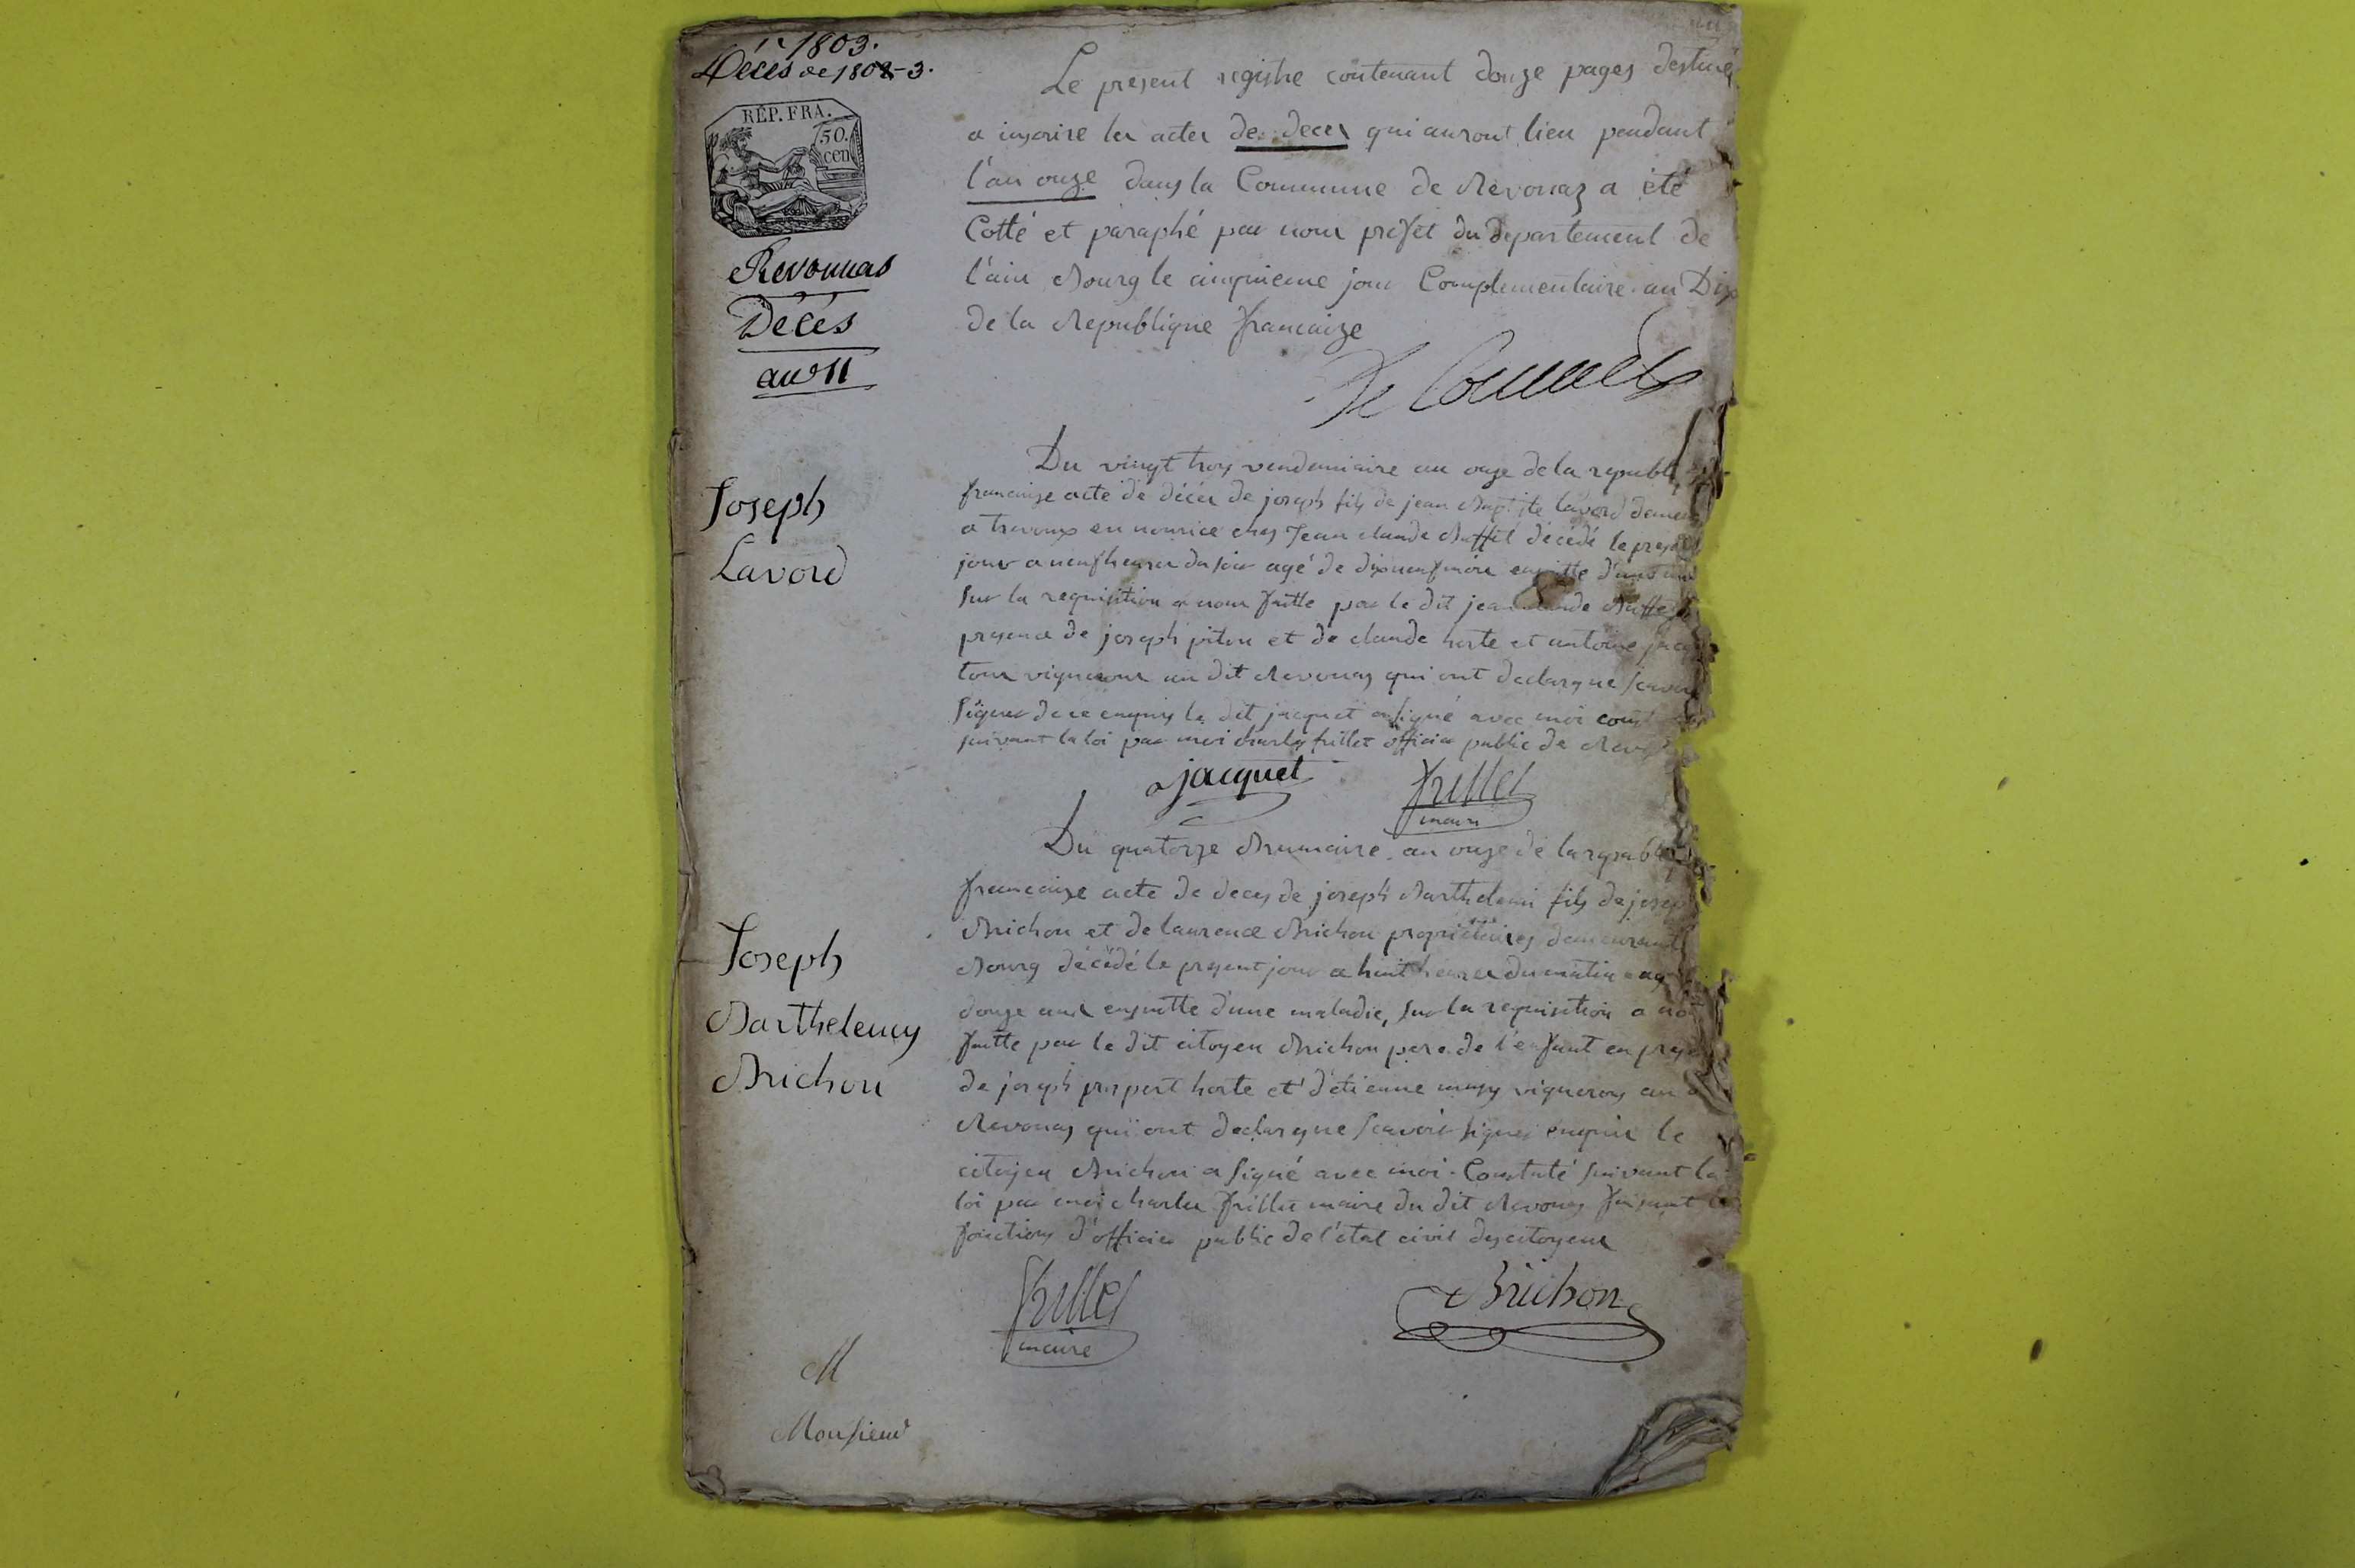 1803.
Décés de 1802-3.
RÉP. FRA.
50.
cen
Revonnas
Décés
an 11
Le present registre contenant douze pages destiné
a inscrire les actes de deces qui auront lieu pendant
l'an onze dans la Commune de Revonaz a été
Cotté et paraphé par nous prefet du departement de
l'ain Bourg le cinquieme jour Complementaire an Dix
de la Republique francaize
Joseph
Lavord
Du vingt troy vendemiaire an onze de la republ
francaize acte de décés de joseph fils de jean Baptiste lavord
a en nourice chez Jean claude Buffet décédé le present
jour a neuf heures du soir agé de dixneuf mois ensuitte d'une
sur la requisition a nous faitte par le dit jean claude Buffet
presence de joseph piton et de claude horte et antoine
tous vignerons au dit Revonas qui ont declaré ne scavoir
signer de ce enquis le dit jacquet a signé avec moi
suivant la loi par moi charles frillet officier public de Rev
jacquet
frillet
maire
Joseph
Barthelemy
Brichon
Du quatorze Brumaire an onze de la republ
francaize acte de deces de joseph Barthelemi fils de josep
Brichon et de laurence Brichon propriétaires demeurant
Bourg décédé le present jour a huit heures du matin agé
douze ans ensuitte d'une maladie, sur la requisition a
faitte par le dit citoyen Brichon pere de l'enfant en
de joseph horte et d'étienne vignerons au
Revonas qui ont declaré ne scavoir signer enquis le
citoyen Brichon a signé avec moi. Constaté suivant la
loi par moi charles frillet maire du dit Revonas faisant les
fonctions d'officier public de l'état civil des citoyens
frillet
maire
Brichon
M
Monsieur